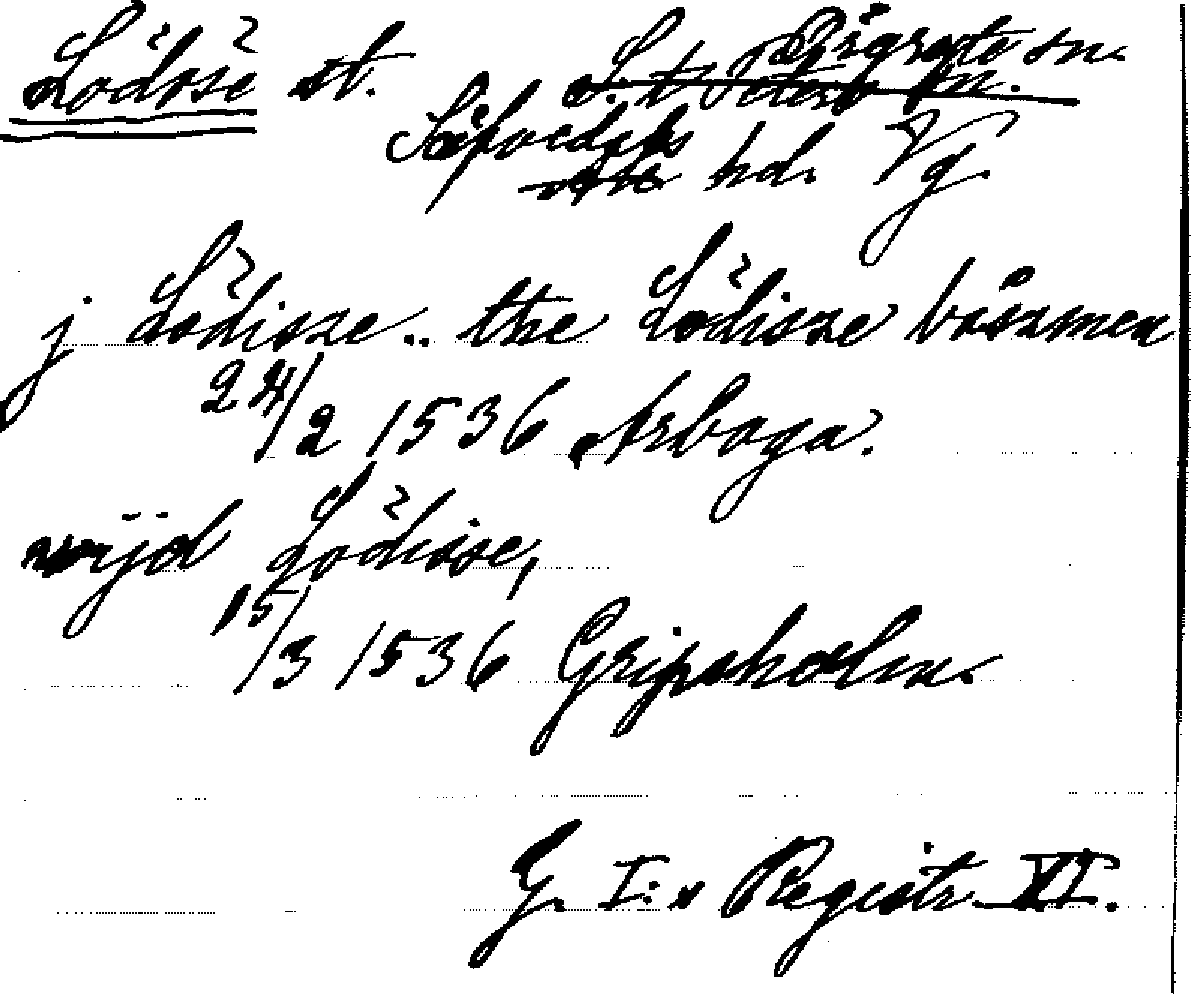 Lödöse st. Örgryte sn.
S:t Peters sn.
Säfvedals hd. Vg.
Ale
j Lödisze.. the Lödisze båszmen
24/2 1536 Arboga.
wijd Lödisse,
15/3 1536 Gripsholm.
G. I:s Registr. XI.